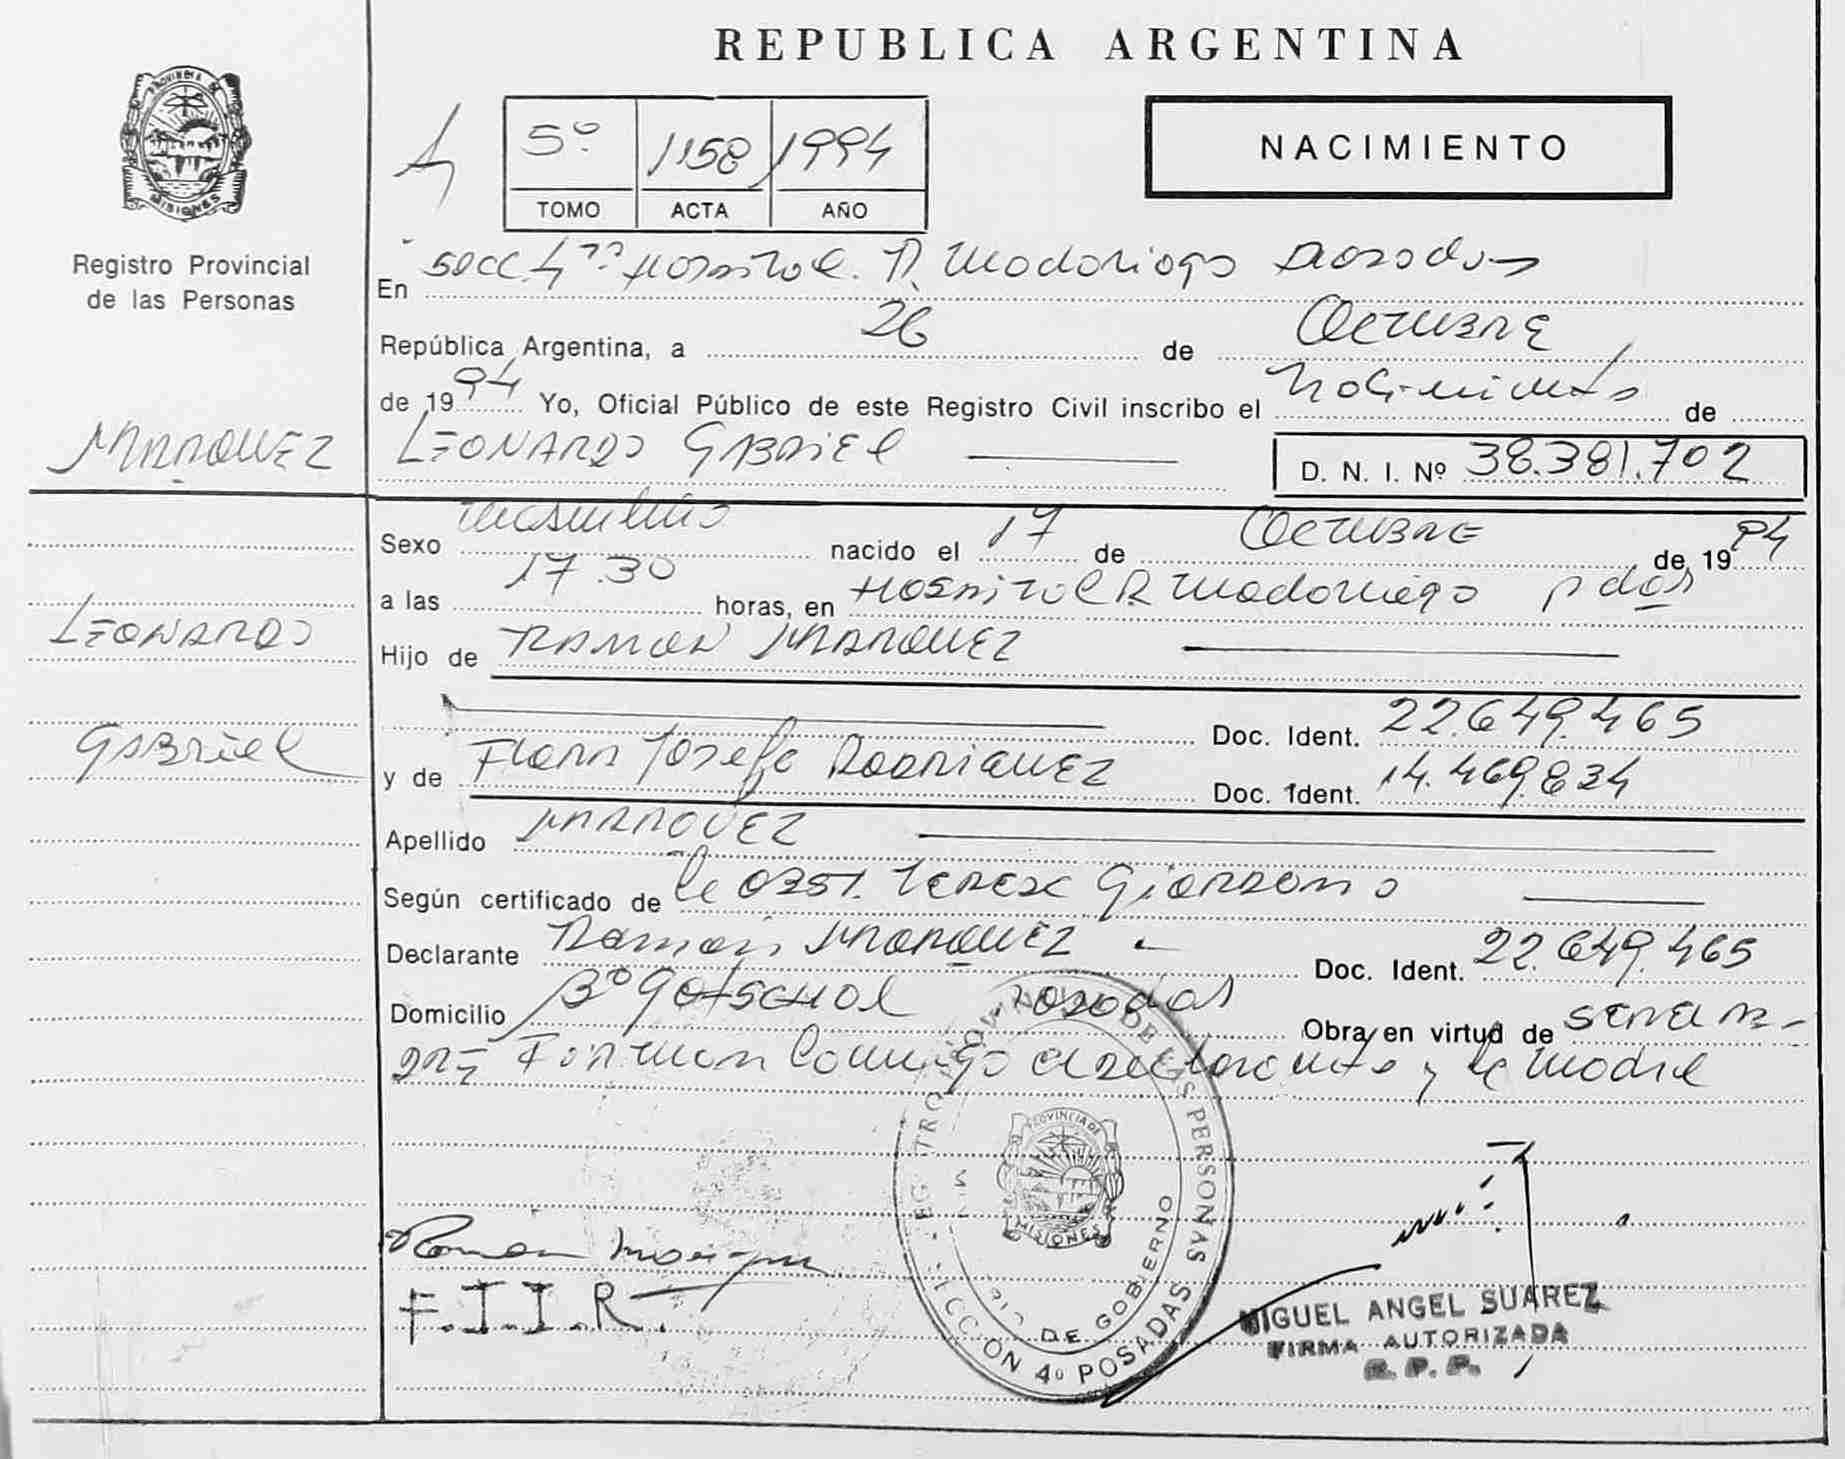 REPUBLICA ARGENTINA
PROVINCIA DE
MISIONES
Registro Provincial
de las Personas
5º 1158 1994
TOMO ACTA AÑO
NACIMIENTO
En Secc 4ta Hospital R. Madariaga Posadas
República Argentina, a 26 de Octubre
de 1994 Yo, Oficial Público de este Registro Civil inscribo el Nacimiento de
MARQUEZ
LEONARDO GABRIEL
D. N. I. Nº 38.381.702
Sexo masculino nacido el 17 de Octubre de 1994
a las 17.30 horas, en Hospital R. Madariaga pdas
LEONARDO
Hijo de RAMON MARQUEZ
Doc. Ident. 22.649.465
GABRIEL
y de Flora Josefa RODRIGUEZ Doc. Ident. 14.469.834
Apellido MARQUEZ
Según certificado de la Obst. Teresa
Declarante Ramón MARQUEZ Doc. Ident. 22.649.465
Domicilio Bº Posadas Obra en virtud de
Firman Conmigo el declarante y la madre
PERSONAS
PROVINCIA DE
MISIONES
DE GOBIERNO
SECCIÓN 4º POSADAS
Ramon
F.I.I.R.
MIGUEL ANGEL SUAREZ
FIRMA AUTORIZADA
R. P. P.